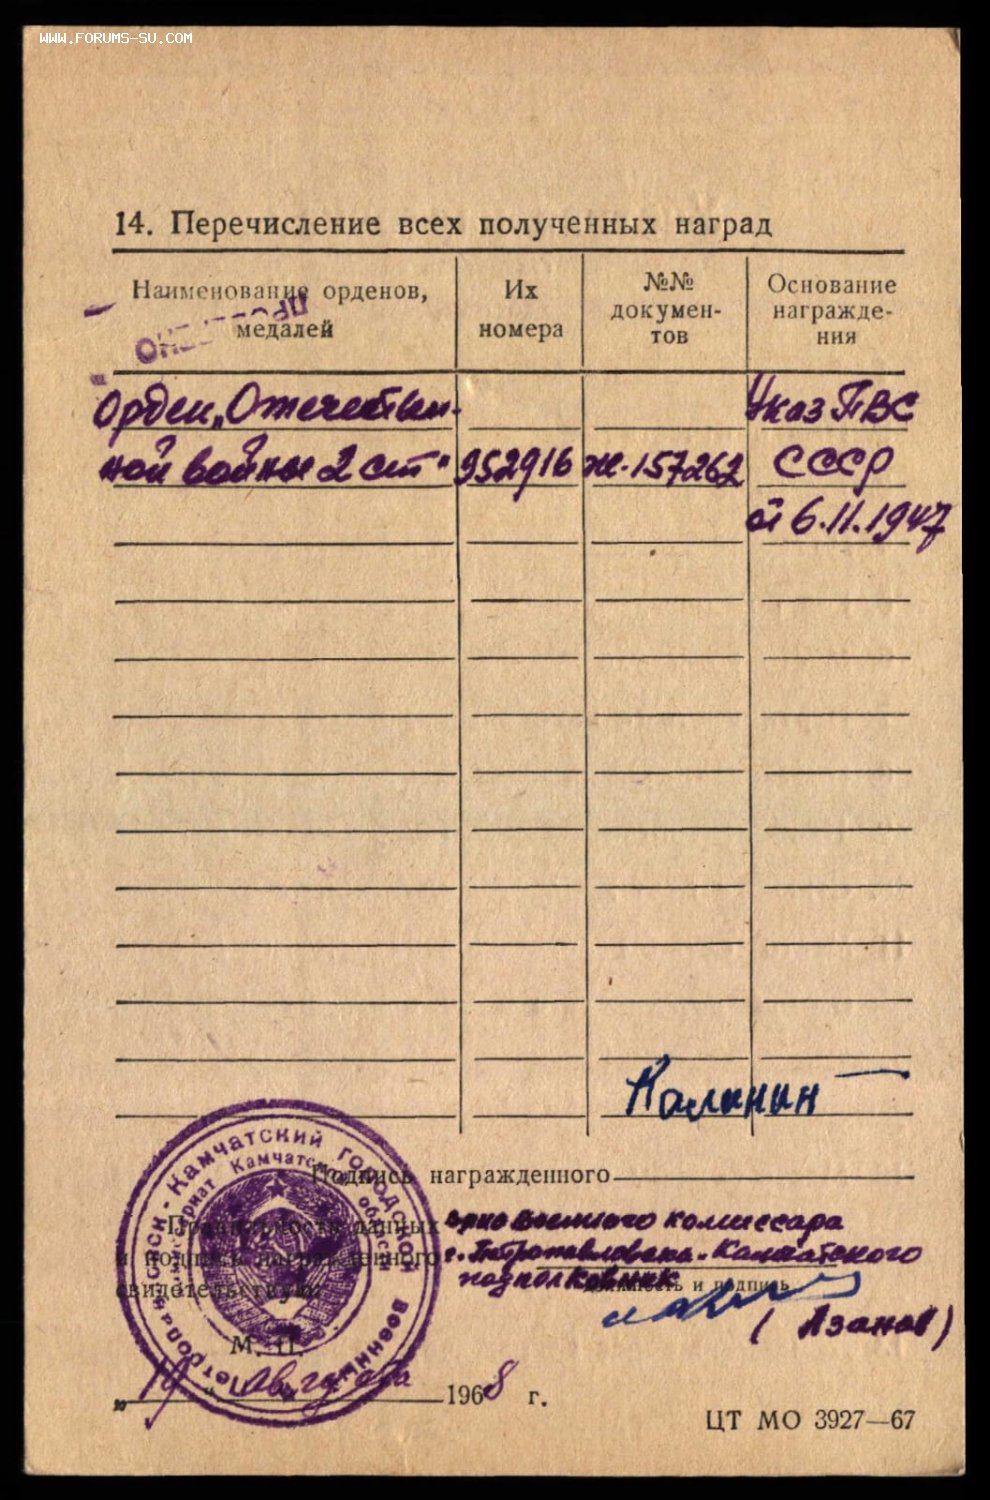 WWW.FORUMS-SU.COM
14. Перечисление всех полученных наград
Наименование орденов, медалей
Их номера
№№ докумен- тов
Основание награжде- ния
Орден „Отечествен-
ной войны 2 ст"
952916
Ж-157262
Указ ПВС
СССР
от 6.11.1947
Калинин
Подпись награжденного
Правильность данных
и подпись награжденного
свидетельствую:
врио военного комиссара
г. Петропавловска-Камчатского
подполковник
должность и подпись
(Азанов)
М. П.
„10" августа 1968 г.
ЦТ МО 3927—67
Петропавловск-Камчатский городской военный
комиссариат Камчатской области